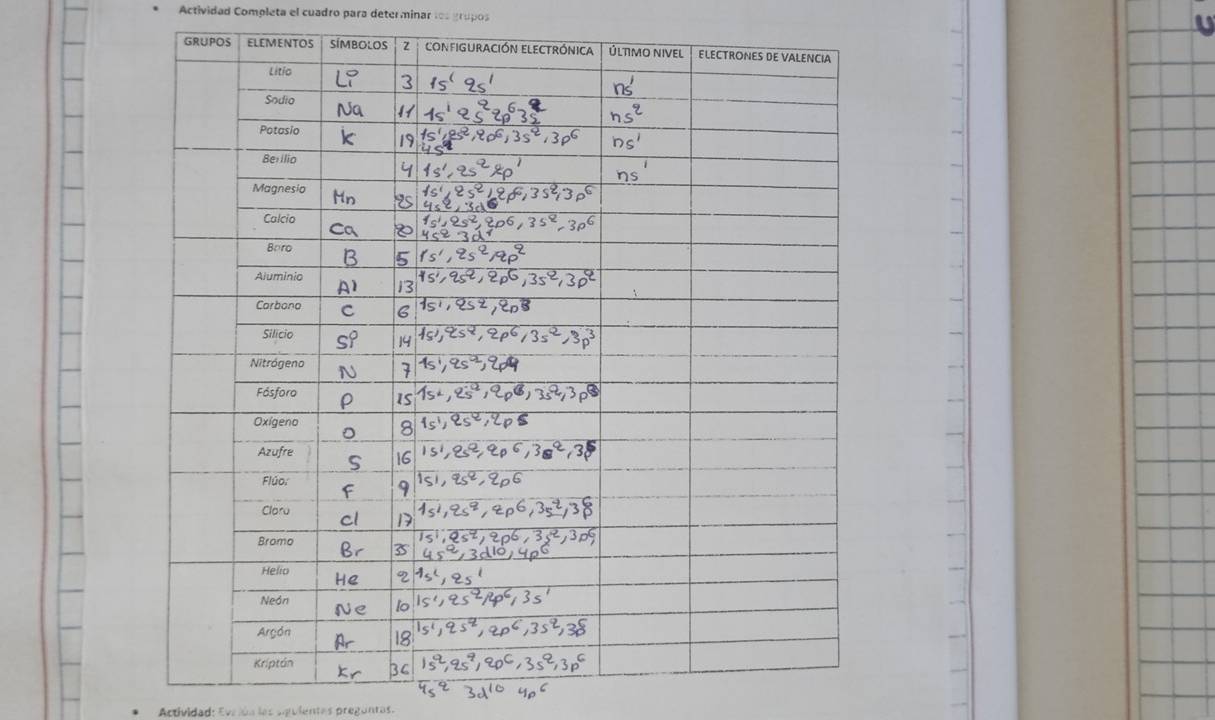 • Actividad Completa el cuadro para determinar los grupos
GRUPOS ELEMENTOS SÍMBOLOS Z CONFIGURACIÓN ELECTRÓNICA ÚLTIMO NIVEL ELECTRONES DE VALENCIA
Litio Li 3 1s¹ 2s¹ ns¹
Sodio Na 11 1s¹ 2s² 2p⁶ 3s² ns²
Potasio K 19 1s¹, 2s², 2p⁶, 3s², 3p⁶ ns¹
4s²
Berilio 4 1s¹, 2s² 2p¹ ns¹
Magnesio Mn 25 1s¹, 2s², 2p⁶, 3s², 3p⁶
4s², 3d⁶
Calcio Ca 20 1s¹, 2s², 2p6, 3s², 3p⁶
4s² 3d¹
Boro B 5 1s¹, 2s², 2p²
Aluminio Al 13 1s¹, 2s², 2p⁶, 3s², 3p²
Carbono C 6 1s¹, 2s², 2p3
Silicio Si 14 1s¹, 2s², 2p⁶, 3s², 3p³
Nitrógeno N 7 1s¹, 2s², 2p4
Fósforo P 15 1s¹, 2s², 2p6, 3s², 3p
Oxígeno O 8 1s¹, 2s², 2p5
Azufre S 16 1s¹, 2s², 2p6, 3s², 3p⁵
Flúor F 9 1s1, 2s², 2p6
Cloro Cl 17 1s¹, 2s², 2p6, 3s², 3p⁶
Bromo Br 35 1s¹, 2s², 2p6, 3s², 3p⁶,
4s², 3d10, 4p⁶
Helio He 2 1s¹, 2s¹
Neón Ne 10 1s¹, 2s² 2p⁶, 3s¹
Argón Ar 18 1s¹, 2s², 2p⁶, 3s², 3p⁶
Kriptón Kr 36 1s², 2s², 2p⁶, 3s², 3p⁶
4s² 3d¹⁰ 4p⁶
• Actividad: Evalúa las siguientes preguntas.